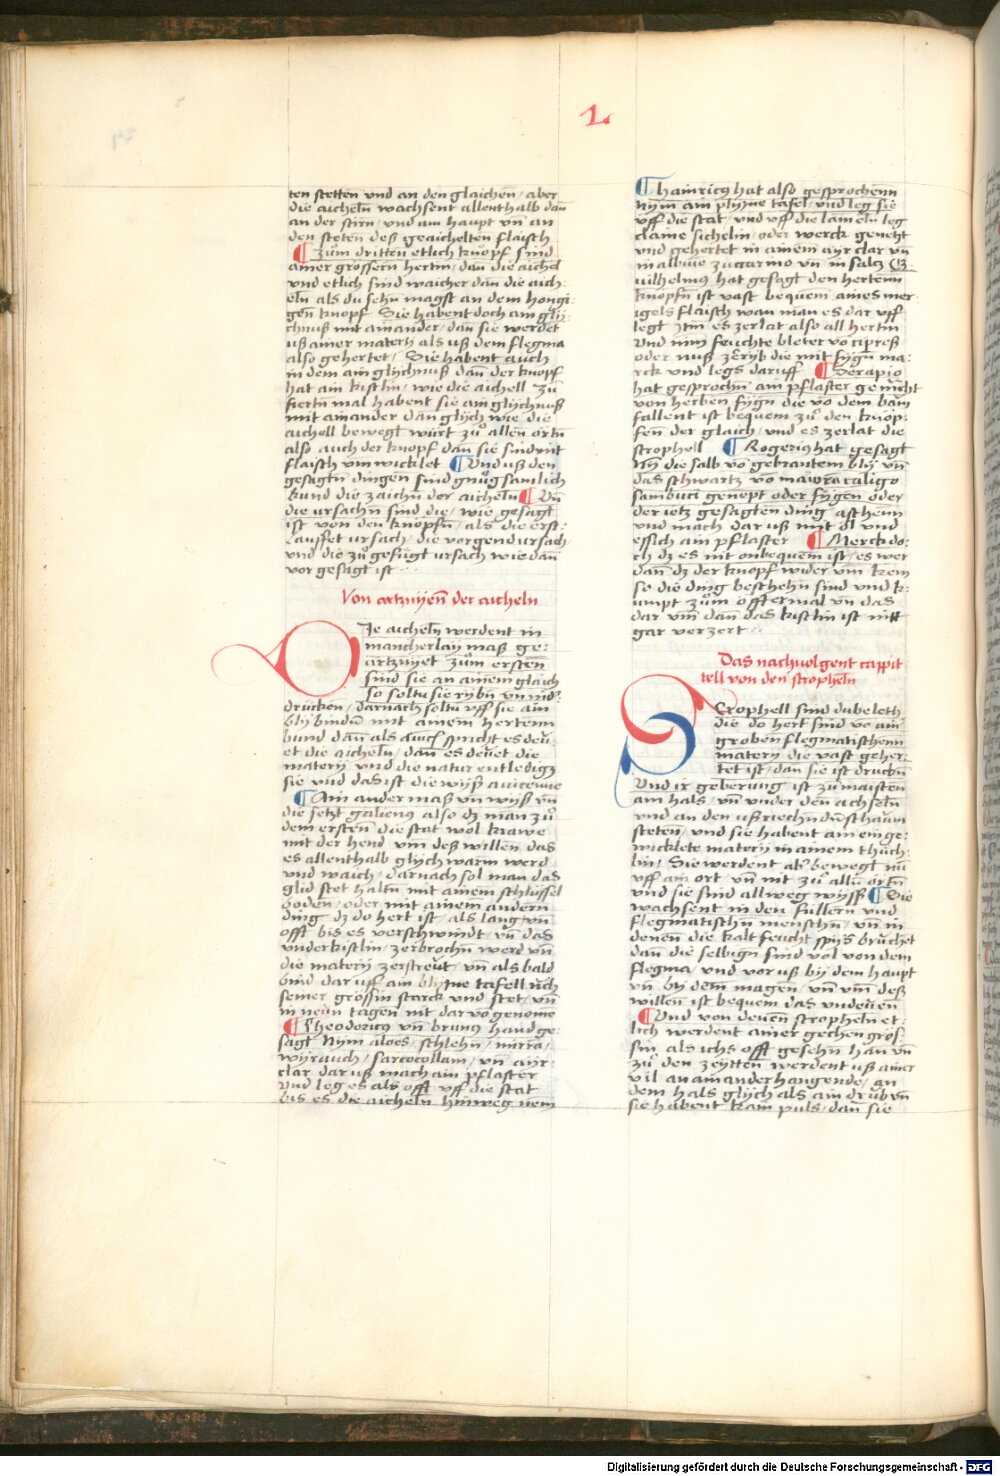 2
ten stetten vnd an den glaichen / aber
die aicheln̄ wachsent allenthalb dañ
an der stirn / vnd am haupt vn̄ an
den steten deß geaichelten flaisch
¶ Zum dritten etlich knöpf sind
ainer grössern hertin / dañ die aichel
vnd etlich sind waicher dañ die aich
eln̄ als du sehn magst an dem hongi
gen knopf Sie habent doch am glÿ
chnuß mit ainander / dañ sie werdet
uß ainer matery als uß dem flegma
also gehertet / Sie habent auch
in dem ain glychnuß dañ der knopf
hat ain kistlin / wie die aichell Zu
fiertn̄ mal habent sie ain glychnuß
mit ainander dañ glÿch wie die
aichell bewegt würt zu allen ortn̄
also auch der knopf dañ sie sind mit
flaisch vm wicklet ¶ Vnd uß den
gesagtn̄ dingen sind gnug samlich
kund die zaichn̄ der aicheln̄ ¶ Vn̄
die ursachn̄ sind die / wie gesagt
ist von den knöpfn̄ / als die erst:
lauffet ursach / die vorgend ursach
vnd die zu gefügt ursach wie dañ
vor gesagt ist
Von artznÿen̄ der aicheln
DIe aicheln̄ werdent in
mancherlaÿ maß ge:
artznÿet zum ersten
sind sie an ainem glaich
so soltu sie rybn̄ vn̄ nid
drucken / darnach soltu vff sie ain
blÿ bindn̄ mit ainem hertenn
bund dañ als auic̄ spricht es deü
et die aicheln̄ / dañ es deüet die
matery vnd die natur entledigz
sie vnd das ist die wÿß auicenne
¶ Ain ander maß vn̄ wÿß vn̄
die setzt galienus also dz man zu
dem ersten die stat wol krawe
mit der hend vm deß willen das
es allenthalb glÿch warm werd
vnd waich / darnach sol man das
glid stet haltn̄ mit ainem schlüssel
boden / oder mit ainem andern
ding dz do hert ist / als lang vn̄
offt bis es verschwindt / vn̄ das
vnder kistlin / zerbrochn̄ werd vn̄
die matery zerströut / vn̄ als bald
bind dar uff am blÿne tafell nach
seiner grössin starck vnd stet / vn̄
in neün tagen nit dar vo genome
¶ Theodoricus vn̄ brunus hand ge:
sagt Nym aloes / schlehn̄ / mirra /
wÿrauch / sarcocollam / vn̄ aÿr
clar dar uß mach ain pflaster
vnd leg es als offt vff die stat
bis es die aicheln̄ hinweg nem
¶ hainricus hat also gesprochenn
nÿm ain plÿine tafel / vnd leg sie
vff die stat / vnd vff die lameln̄ leg
claine sicheln̄ / oder werck genetzt
vnd gehertet in ainem aÿr clar vn̄
in albuue zu garino vn̄ in saltz
wilhelmus hat gesagt den hertenn
knöpfn̄ ist vast bequem aines mer
igels flaisch wan man es dar vff
legt Itm̄ es zerlat also all hertin
Vnd nim feuchte bleter vo cipreß
oder nuß zerryb die mit fÿgn̄ ma:
rck vnd legs daruff ¶ Serapio
hat gesprochn̄ ain pflaster gemcht
von herben fÿgn̄ die vo dem bäu
fallent ist bequem zu den knöp:
fen̄ der glaich / vnd es zerlat die
strophell ¶ Rogerius hat gesagt
Nÿ die salb vo gebrantem blÿ vn̄
das schwartz vo maura caligo
sambuci genopt oder fÿgen oder
der ietz gesagten ding aschenn
vnd mach dar uß mit öl vnd
essich ain pflaster ¶ Merck do:
ch dz es nit onbequem ist / es wer
dañ dz der knopf wider vm kem
so die ding beschehn̄ sind vnd k:
umpt zum öfftermal vn̄ das
dar vm dañ das kistlin ist nitt
gar verzert
Das nachuolgent cappit
tell von den stropheln
STrophell sind dubeleth
die do hert sind vo ain
groben flegmatischenn
matery die vast geher:
tet ist / dañ sie ist druckn̄
Vnd ir geberung ist zu maisten
am hals / vn̄ vnder den achseln̄
vnd an den ußriechn̄
steten / vnd sie habent am einge:
wicklete matery in ainem thüch:
lin / Sie werdent ab bewegt nu
vff ain ort vn̄ nit zu alln̄ örtn̄
vnd sie sind allweg wÿß ¶ Die
wachsent in den füllern vnd
flegmatischn̄ menschn̄ / vn̄ in
denen̄ die kalt feucht spÿs bruchet
dañ die selbign̄ sind vol von dem
flegma / vnd vor uß bÿ dem haupt
vn̄ bÿ dem magen̄ / vn̄ vm deß
willen̄ ist bequem das vndeüen̄
¶ Vnd von denen̄ stropheln̄ et:
lich werdent ainer gechen grös:
sin als ichs offt gesehn̄ han vn̄
zu den zeÿtten̄ werdent uß ainer
vil an ainander hangende / an
dem hals glÿch als ain drubn̄ vn̄
sie habent kain puls / dañ sie
Digitalisierung gefördert durch die Deutsche Forschungsgemeinschaft - DFG